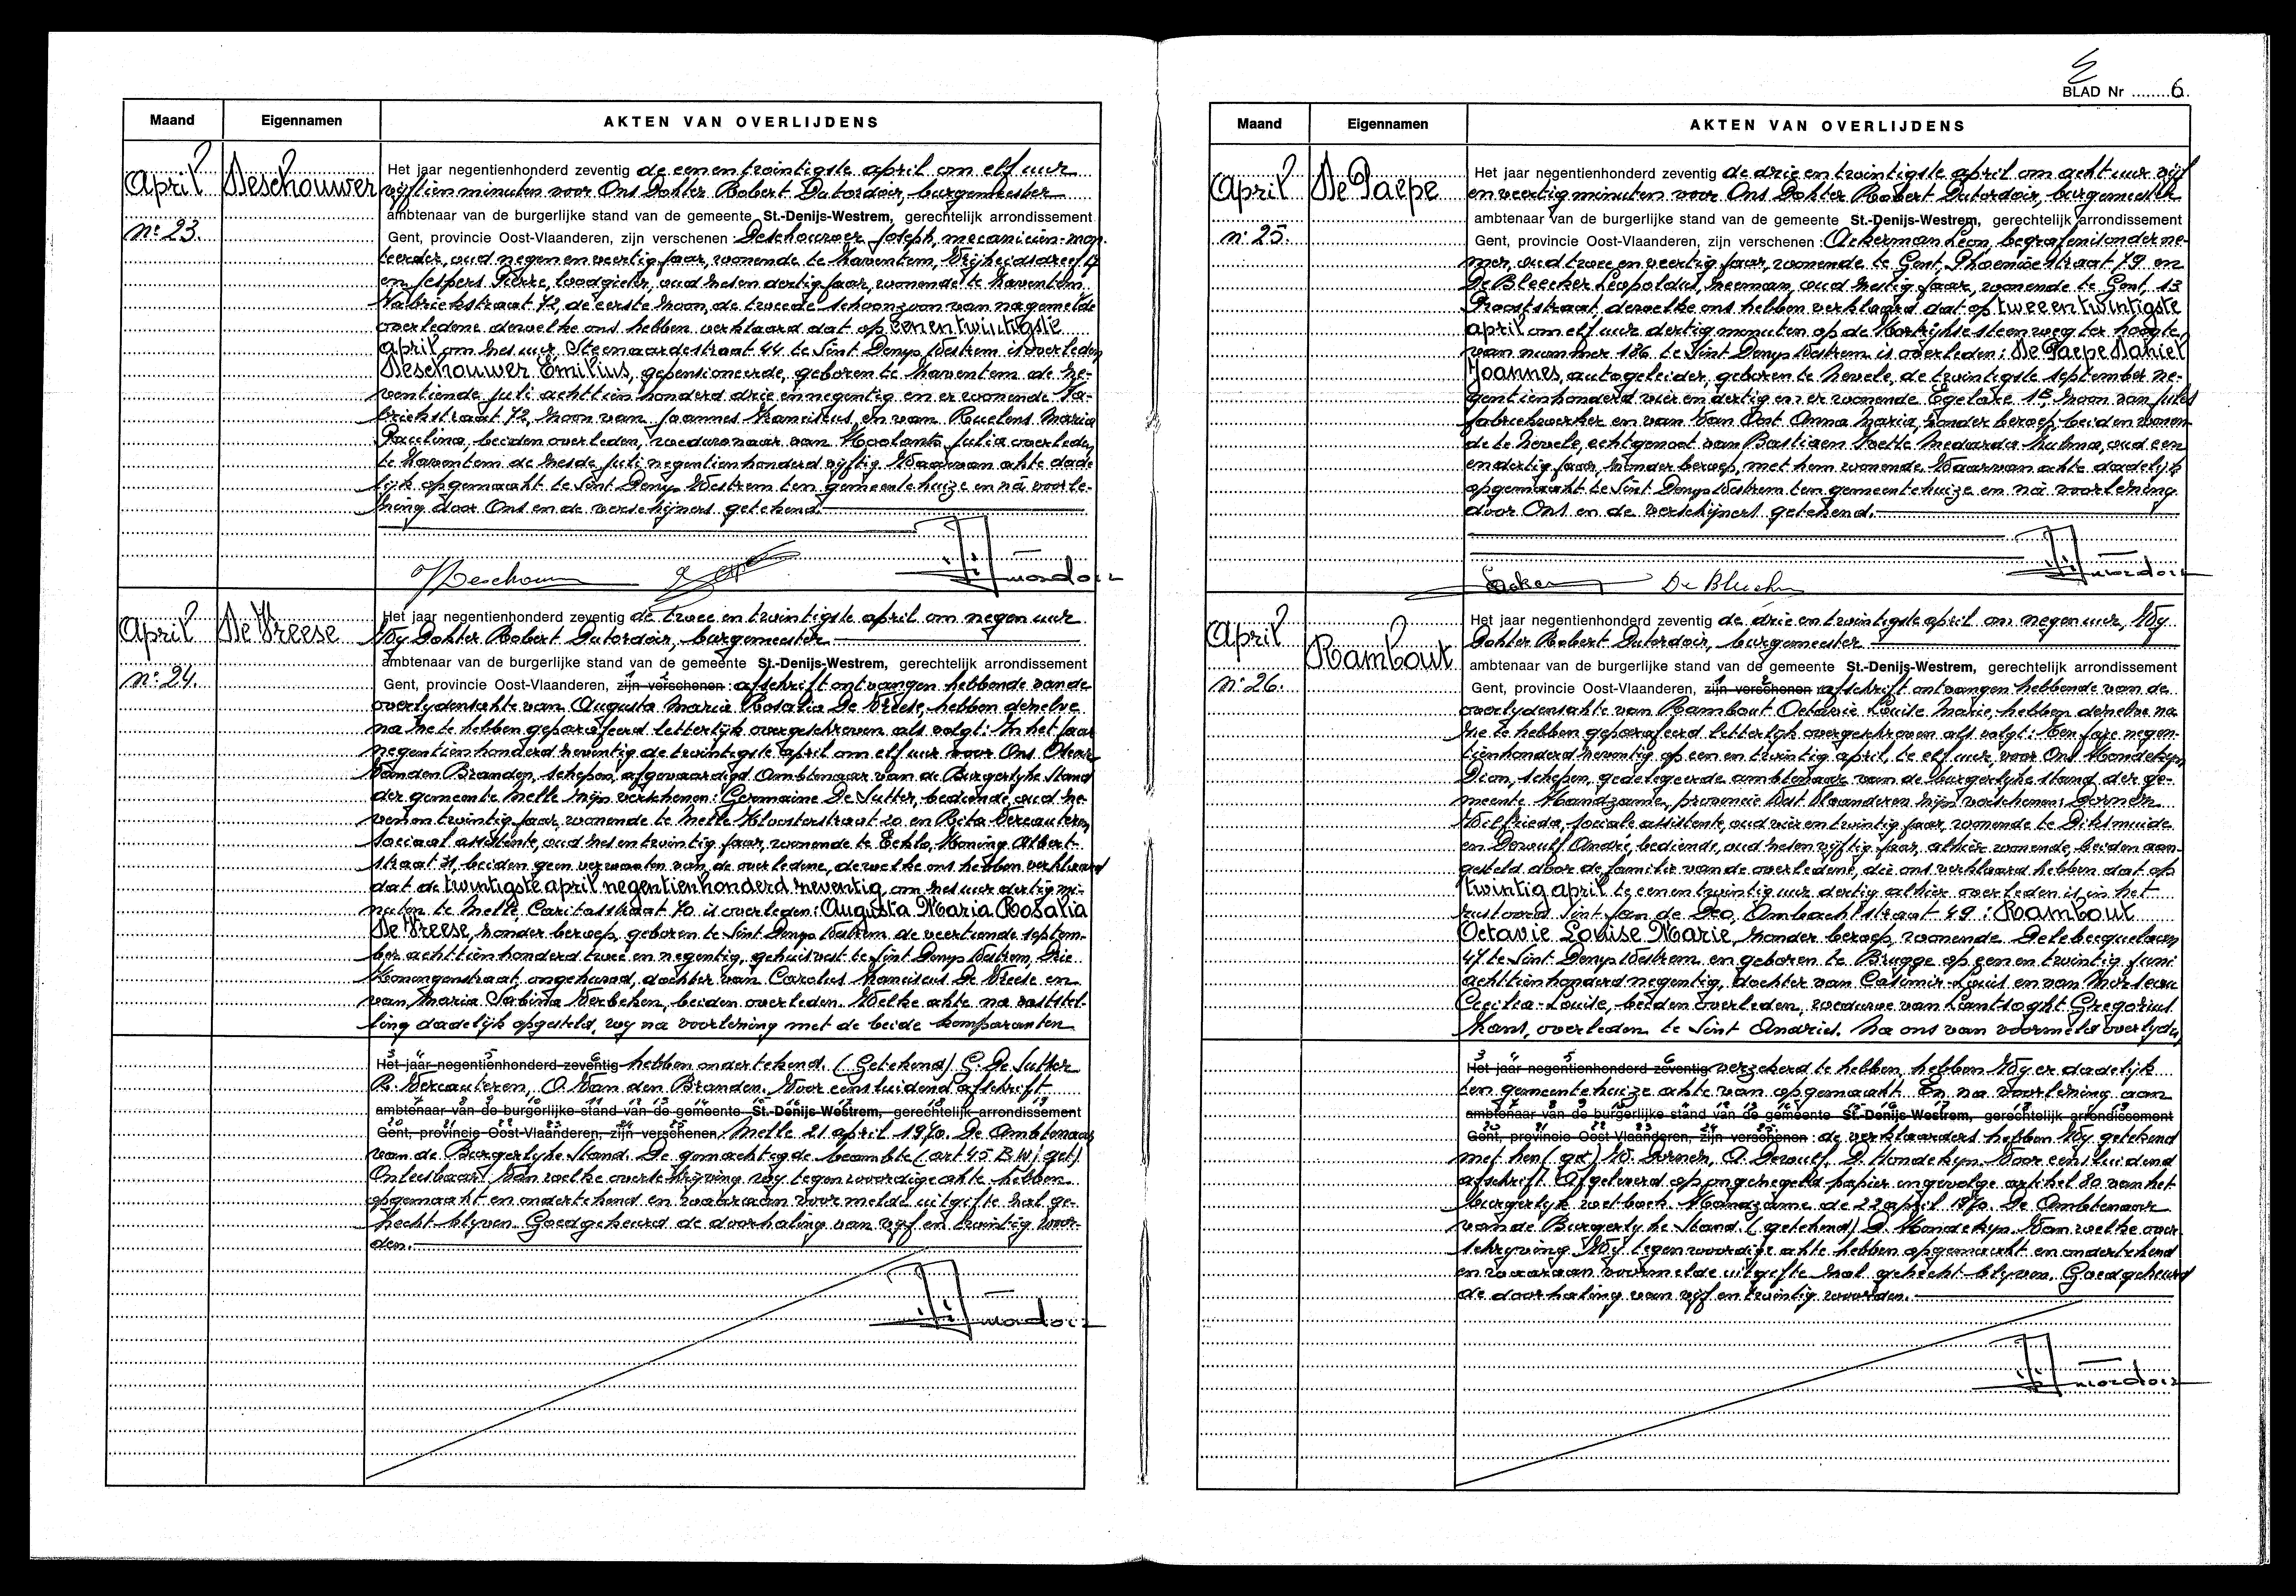 Maand Eigennamen AKTEN VAN OVERLIJDENS
April Deschouwer
n° 23.
Het jaar negentienhonderd zeventig de eenentwintigste april om elf uur
vijftien minuten voor Ons Dokter Robert Dutordoir, burgemeester
ambtenaar van de burgerlijke stand van de gemeente St.-Denijs-Westrem, gerechtelijk arrondissement
Gent, provincie Oost-Vlaanderen, zijn verschenen: Deschouwer Joseph, mecanicien-mon-
teerder, oud negenenveertig jaar, wonende te Zaventem, Vrijheidsdreef
en Jespers Pierre, loodgieter, oud zesendertig jaar, wonende te Zaventem
Fabriekstraat 72, de eerste zoon, de tweede schoonzoon van nagemelde
overledene dewelke ons hebben verklaard dat op eenentwintigste
april om zes uur Steenaardestraat 44 te Sint Denys Westrem is overleden
Deschouwer Emilius, gepensioneerde, geboren te Zaventem de ze-
ventiende juli achttienhonderd drieennegentig en er wonende Fa-
briekstraat 72, zoon van Joannes Franciskus en van Ruelens Maria
Paulina, beiden overleden, weduwnaar van Julia overleden
te Zaventem de zesde juli negentienhonderd vijftig. Waarvan akte dade-
lijk opgemaakt te Sint Denys Westrem ten gemeentehuize en na voorle-
zing door Ons en de verschijners getekend.
April De Vreese
n° 24.
Het jaar negentienhonderd zeventig de tweeentwintigste april om negen uur
Wy Dokter Robert Dutordoir, burgemeester
ambtenaar van de burgerlijke stand van de gemeente St.-Denijs-Westrem, gerechtelijk arrondissement
Gent, provincie Oost-Vlaanderen, zijn verschenen: afschrift ontvangen hebbende van de
overlydensakte van Augusta Maria Rosalia De Vreese, hebben dezelve
na ze te hebben geparafeerd letterlyk overgeschreven als volgt: In het jaar
negentienhonderd zeventig de twintigste april om elf uur voor Ons
Vanden Branden, schepen, afgevaardigd Ambtenaar van de Burgerlyke Stand
der gemeente Melle zijn verschenen: Germaine De Sutter, bediende, oud ze-
venentwintig jaar, wonende te Melle Kloosterstraat 20 en Rita Vercauteren
sociaal assistente, oud zesentwintig jaar, wonende te Eeklo, Koning Albert-
straat 31, beiden geen verwanten van de overledene, dewelke ons hebben verklaard
dat de twintigste april negentienhonderd zeventig om zes uur dertig mi-
nuten te Melle Caritasstraat 70 is overleden: Augusta Maria Rosalia
De Vreese, zonder beroep, geboren te Sint Denys Westrem de veertiende septem-
ber achttienhonderd tweeennegentig, gehuisvest te Sint Denys Westrem, Drie
Koningenstraat ongehuwd, dochter van Carolus Franciscus De Vreese en
van Maria Sabina Verbeken, beiden overleden. Welke akte na vaststel-
ling dadelijk opgesteld, wy na voorlezing met de beide komparanten
Het jaar negentienhonderd zeventig hebben ondertekend. (Getekend) G. De Sutter
R. Vercauteren, O. Van den Branden. Voor eensluidend afschrift
ambtenaar van de burgerlijke stand van de gemeente St.-Denijs-Westrem, gerechtelijk arrondissement
Gent, provincie Oost-Vlaanderen, zijn verschenen: Melle 21 april 1970. De Ambtenaar
van de Burgerlyke Stand. De gemachtigde beambte (art 45 BW) get)
Onleesbaar. Van welke overschrijving wy tegenwoordige akte hebben
opgemaakt en ondertekend en waaraan voormelde uitgifte zal ge-
hecht blyven. Goedgekeurd de doorhaling van vijf en twintig woor-
den.
BLAD Nr 6
Maand Eigennamen AKTEN VAN OVERLIJDENS
April De Paepe
n° 25.
Het jaar negentienhonderd zeventig de drieentwintigste april om acht uur vijf
en veertig minuten voor Ons Dokter Robert Dutordoir, burgemeester
ambtenaar van de burgerlijke stand van de gemeente St.-Denijs-Westrem, gerechtelijk arrondissement
Gent, provincie Oost-Vlaanderen, zijn verschenen: Ackerman Leon, begrafenisonderne-
mer, oud tweeenveertig jaar, wonende te Gent, Phoenixstraat 79 en
De Bleecker Leopoldus, oud zestig jaar, wonende te Gent, 13
Prooststraat, dewelke ons hebben verklaard dat op tweeentwintigste
april om elf uur dertig minuten op de Kortrijkse steenweg ter hoogte
van nummer 186 te Sint Denys Westrem is overleden: De Paepe Daniel
Joannes, autogeleider, geboren te Nevele, de twintigste september ne-
gentienhonderd vierendertig en er wonende Egelare 15, zoon van Jules
fabriekwerker en van Van Ont Anna Maria, zonder beroep, beiden wonen-
de te Nevele, echtgenoot van Bastiaen Ivette Medarda Zulma, oud een
endertig jaar, zonder beroep, met hem wonende. Waarvan akte dadelijk
opgemaakt te Sint Denys Westrem ten gemeentehuize en na voorlezing
door Ons en de verschijners getekend.
De Bleecker
April Rambout
n° 26.
Het jaar negentienhonderd zeventig de drieentwintigste april om negen uur, Wy
Dokter Robert Dutordoir, burgemeester
ambtenaar van de burgerlijke stand van de gemeente St.-Denijs-Westrem, gerechtelijk arrondissement
Gent, provincie Oost-Vlaanderen, zijn verschenen: afschrift ontvangen hebbende van de
overlydensakte van Rambout Octavie Louise Marie, hebben dezelve na
ze te hebben geparafeerd letterlyk overgeschreven als volgt: Ten jare negen-
tienhonderd zeventig op eenentwintig april, te elf uur, voor Ons Hondekyn
Dion, schepen, gedelegeerde ambtenaar van de burgerlyke stand der ge-
meente Handzame, provincie West Vlaanderen zijn verschenen: Dornen
Wilfrieda, sociale assistente, oud vierentwintig jaar, wonende te Diksmuide
en Dewulf André, bediende, oud zesenvijftig jaar, alhier wonende, beiden aan-
gesteld door de familie van de overledene, die ons verklaard hebben dat op
twintig april te eenentwintig uur dertig alhier overleden is in het
rustoord Sint Jan de Deo, Ambachtstraat 49: Rambout
Octavie Louise Marie, zonder beroep, wonende Delebecquelaan
47 te Sint Denys Westrem en geboren te Brugge op eenentwintig juni
achttienhonderd negentig, dochter van Casimir-Louis en van
Cecilia-Louise, beiden overleden, weduwe van Lantsoght Gregorius
Frans, overleden te Sint Andries. Na ons van voormeld overlyden
Het jaar negentienhonderd zeventig verzekerd te hebben, hebben Wy er dadelijk
ten gemeentehuize akte van opgemaakt. En na voorlezing aan
ambtenaar van de burgerlijke stand van de gemeente St.-Denijs-Westrem, gerechtelijk arrondissement
Gent, provincie Oost-Vlaanderen, zijn verschenen: de verklaarders hebben Wy getekend
met hen (get) W. Dornen, A. Dewulf, D. Hondekyn. Voor eensluidend
afschrift. Afgeleverd op ongezegeld papier ingevolge artikel 80 van het
burgerlyk wetboek. Handzame de 22 april 1970. De Ambtenaar
van de Burgerlyke Stand. (getekend) D. Hondekyn. Van welke over-
schryving Wy tegenwoordige akte hebben opgemaakt en ondertekend
en waaraan voormelde uitgifte zal gehecht blyven. Goedgekeurd
de doorhaling van vijf en twintig woorden.